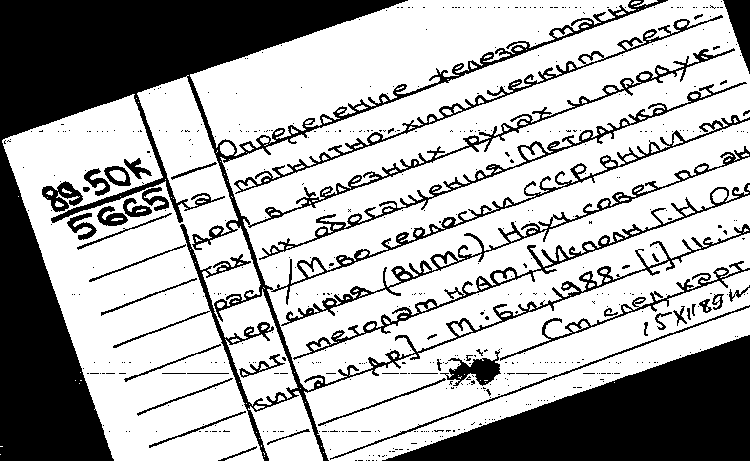 89-50К
5665
Определение железа магне
та магнитно-химическим мето-
дом в железных рудах и продук-
тах их обогащения: Методика от-
расл. / М-во геологии СССР, ВНИИ ми-
нер. сырья (ВИМС). Науч. совет по ан
лит. методам НСАМ; [Исполн. Г.Н. Осо
кина и др.] - М.: Б.и., 1988. - [1], 11с.: и
Ст. след. карт